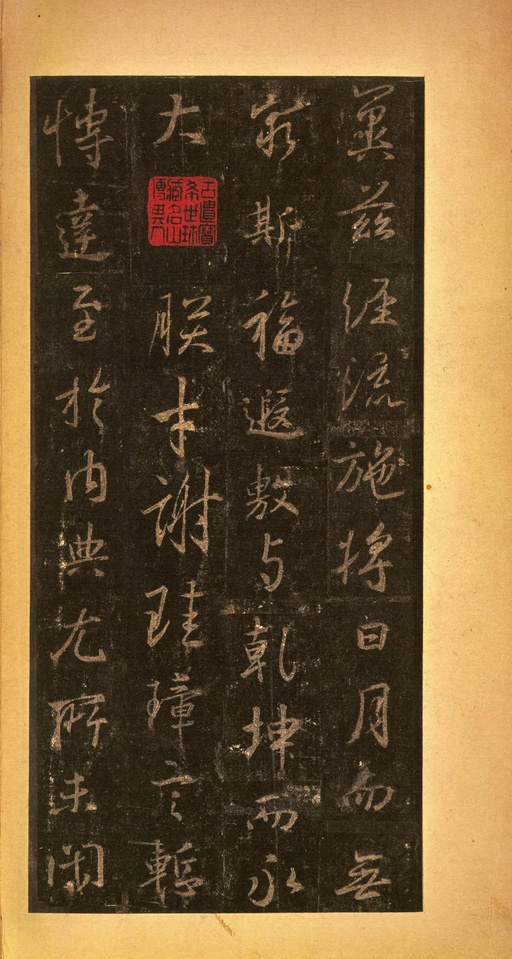 冀茲經流施將日月而無
窮斯福遐敷与乾坤而永
大
朕才謝珪璋言慙
博達至於内典尤所未閑